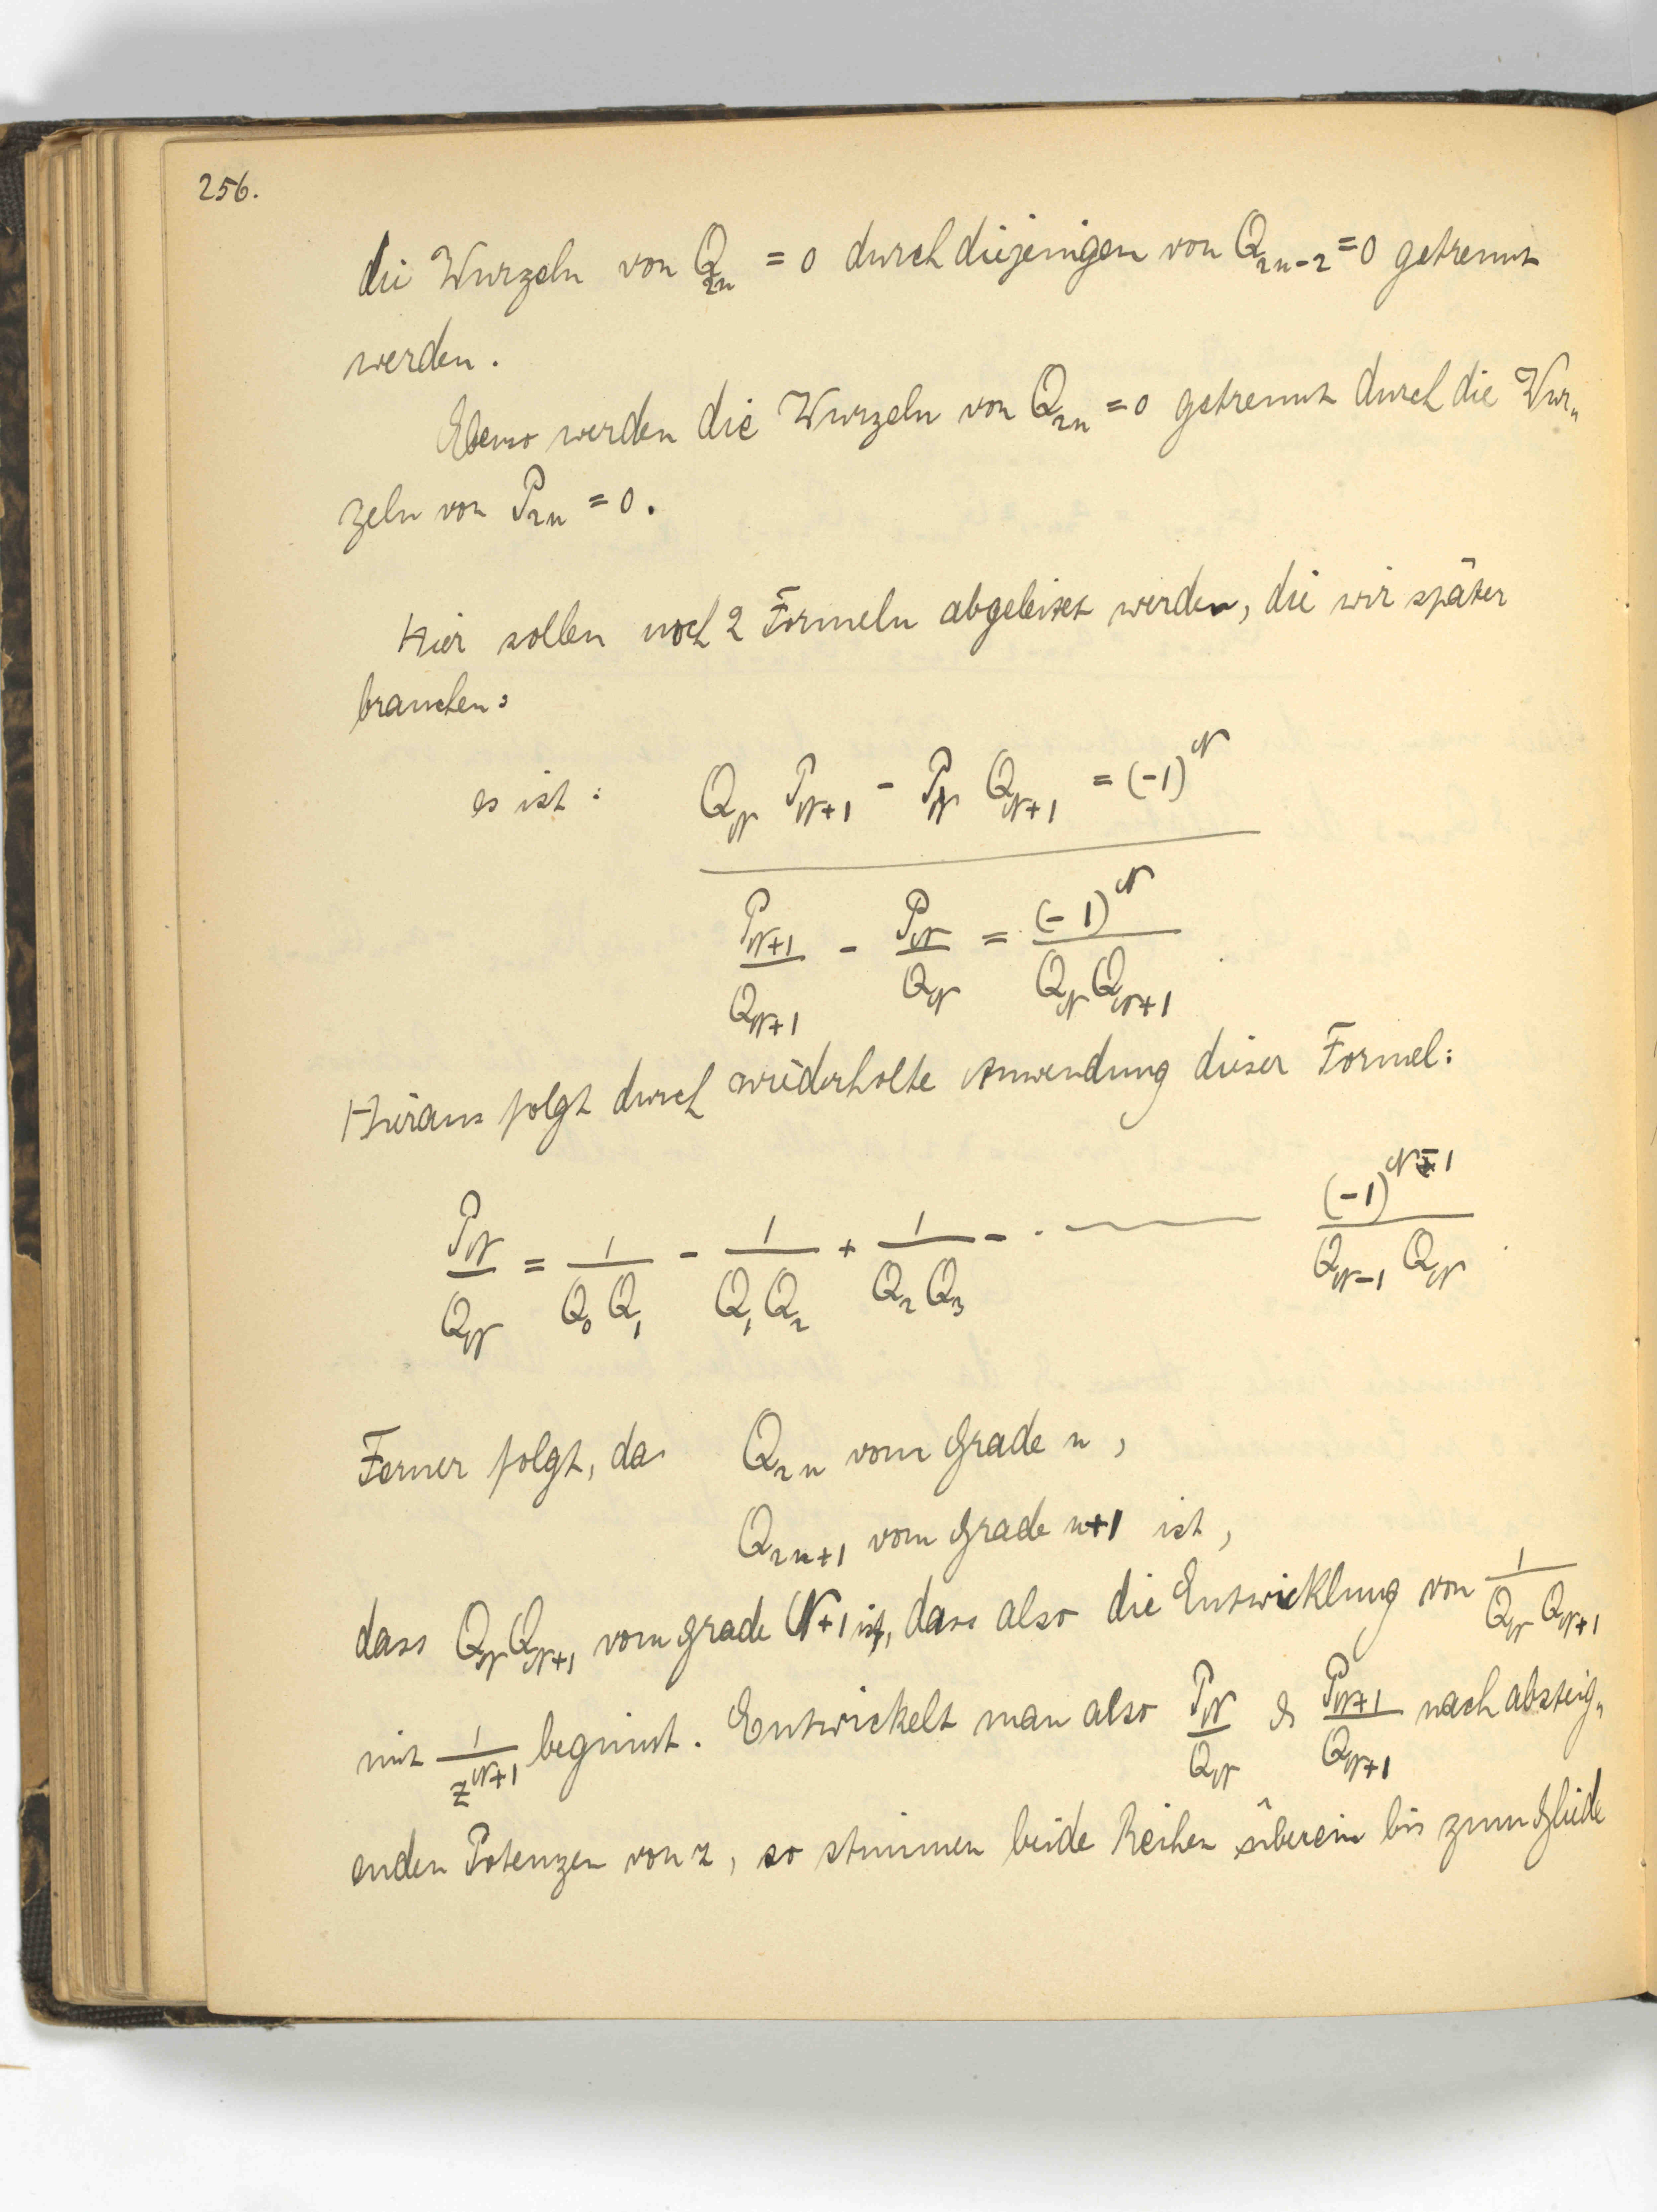 256.
die Wurzeln von Q_{2n} = 0 durch diejenigen von Q_{2n-2} = 0 getrennt
werden.
Ebenso werden die Wurzeln von Q_{2n} = 0 getrennt durch die Wur„
zeln von P_{2n} = 0.
Hier sollen noch 2 Formeln abgeleitet werden, die wir später
brauchen:
es ist: Q_N P_{N+1} - P_N Q_{N+1} = (-1)^N
\frac{P_{N+1}}{Q_{N+1}} - \frac{P_N}{Q_N} = \frac{(-1)^N}{Q_N Q_{N+1}}
Hieraus folgt durch wiederholte Anwendung dieser Formel:
\frac{P_N}{Q_N} = \frac{1}{Q_0 Q_1} - \frac{1}{Q_1 Q_2} + \frac{1}{Q_2 Q_3} - \cdots \frac{(-1)^{N-1}}{Q_{N-1} Q_N}
Ferner folgt, da Q_{2n} vom Grade n,
Q_{2n+1} vom Grade n+1 ist,
dass Q_N Q_{N+1} vom Grade N+1 ist, dass also die Entwicklung von \frac{1}{Q_N Q_{N+1}}
mit \frac{1}{z^{N+1}} beginnt. Entwickelt man also \frac{P_N}{Q_N} & \frac{P_{N+1}}{Q_{N+1}} nach absteig„
enden Potenzen von z, so stimmen beide Reihen überein bis zum Gliede